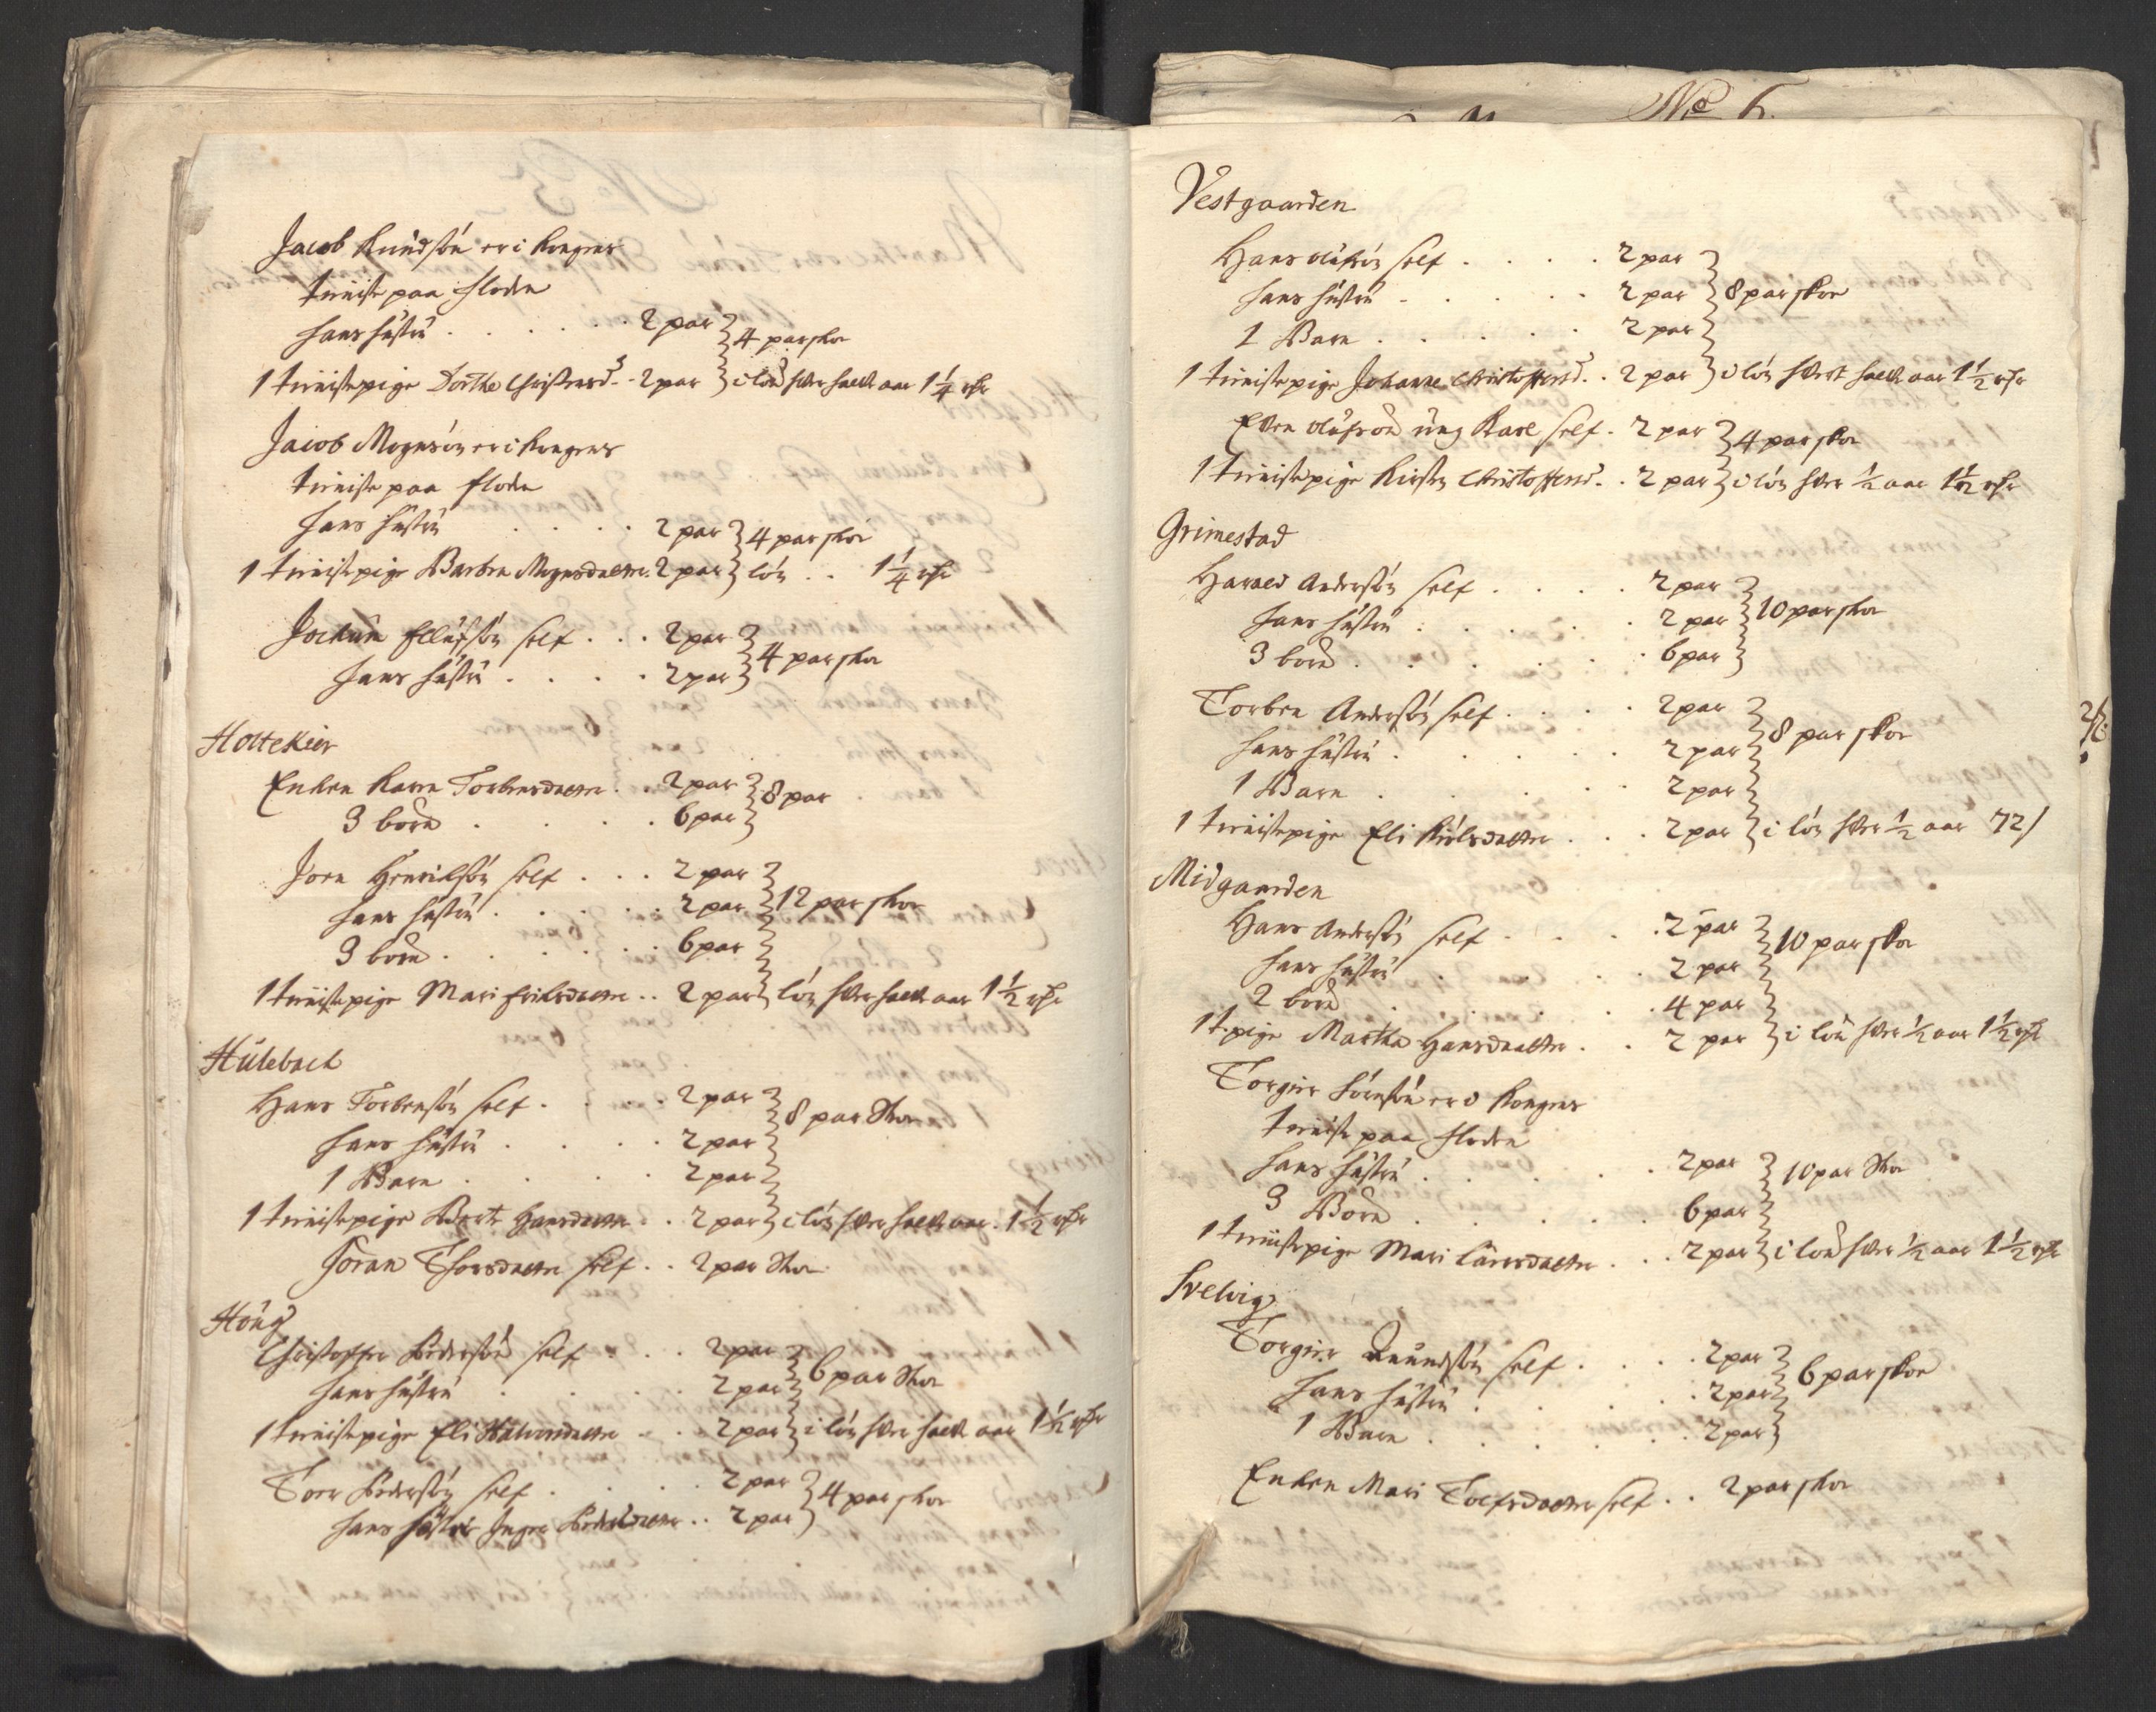 Jacob Knudsön er i Kongens
tieniste paa floden
hans hustru . . . . . . 2 par } 4 par skoe
1 tienistepige Dorthe Christensd. - 2 par } i lön hver halv aar 1 1/4 rdr
Jacob Mognsön er i Kongens
tieniste paa floden
hans hustru . . . . 2 par } 4 par skoe
1 tienistepige Barbra Mognsdatter. 2 par } lön . . 1 1/4 rdr
Jockum Ellufsön self . . . 2 par } 4 par skoe
hans hustru . . . . 2 par }
Holtekier
Enken Karen Torbensdatter . . 2 par } 8 par
3 börn . . . . 6 par }
Jörn Henriksön self . . . 2 par }
hans hustru . . . . . 2 par } 12 par skoe
3 börn . . . . . 6 par }
1 tienistepige Mari Eriksdatter . . 2 par } lön hver halv aar 1 1/2 rdr
Hülebach
Hans Torbensön self . . . . 2 par } 8 par skoe
hans hustru . . . . 2 par }
1 Barn . . . . 2 par }
1 tienistepige Berte Hansdatter . . 2 par } i lön hver halv aar . 1 1/2 rdr
Söran Thorsdatter self . . 2 par skoe
Höug
Christoffer Pedersön self . . . 2 par } 6 par skoe
hans hustru . . . . 2 par }
1 tienistepige Eli Halvorsdatter . . 2 par } i lön hver halv aar 1 1/2 rdr
Torr Pedersön self . . . . 2 par } 4 par skoe
hans söster Inger Pedersdatter . . 2 par }
No 6.
Vestgaarden
Hans Olufsön self . . . . 2 par }
hans hustru . . . . . 2 par } 8 par skoe
1 Barn . . . . . 2 par }
1 tienistepige Johanne Christoffersd. . 2 par } i lön hvert halv aar 1 1/2 rdr
Even Olufsön ung Karl self . 2 par } 4 par skoe
1 tienistepige Kirsten Christoffersd. . 2 par } i lön hver 1/2 aar 1 1/2 rdr
Grimestad
Harald Andersön self . . . . 2 par }
hans hustru . . . . . 2 par } 10 par skoe
3 börn . . . . . . 6 par }
Torben Andersön self . . . . 2 par }
hans hustru . . . . . 2 par } 8 par skoe
1 Barn . . . . . 2 par }
1 tienistepige Eli Nielsdatter . . . 2 par } i lön hver 1/2 aar 72 /
Midgaarden
Hans Andersön self . . . . 2 par } 10 par skoe
hans hustru . . . . 2 par }
2 börn . . . . . . 4 par }
1 t.pige Martha Hansdaatter . . 2 par } i lön hver 1/2 aar 1 1/2 rdr
Torgier Sörensön er i Kongens
tieniste paa floden
hans hustru . . . . . . 2 par } 10 par skoe
3 Börn . . . . . . 6 par }
1 tienistepige Mari Larsdatter . . . 2 par } i lön hver 1/2 aar 1 1/2 rdr
Svelvig
Torgier Amundsön self . . . . 2 par } 6 par skoe
hans hustru . . . . . 2 par }
1 Barn . . . . . . 2 par }
Enken Mari Tolfsdatter self . . 2 par skoe